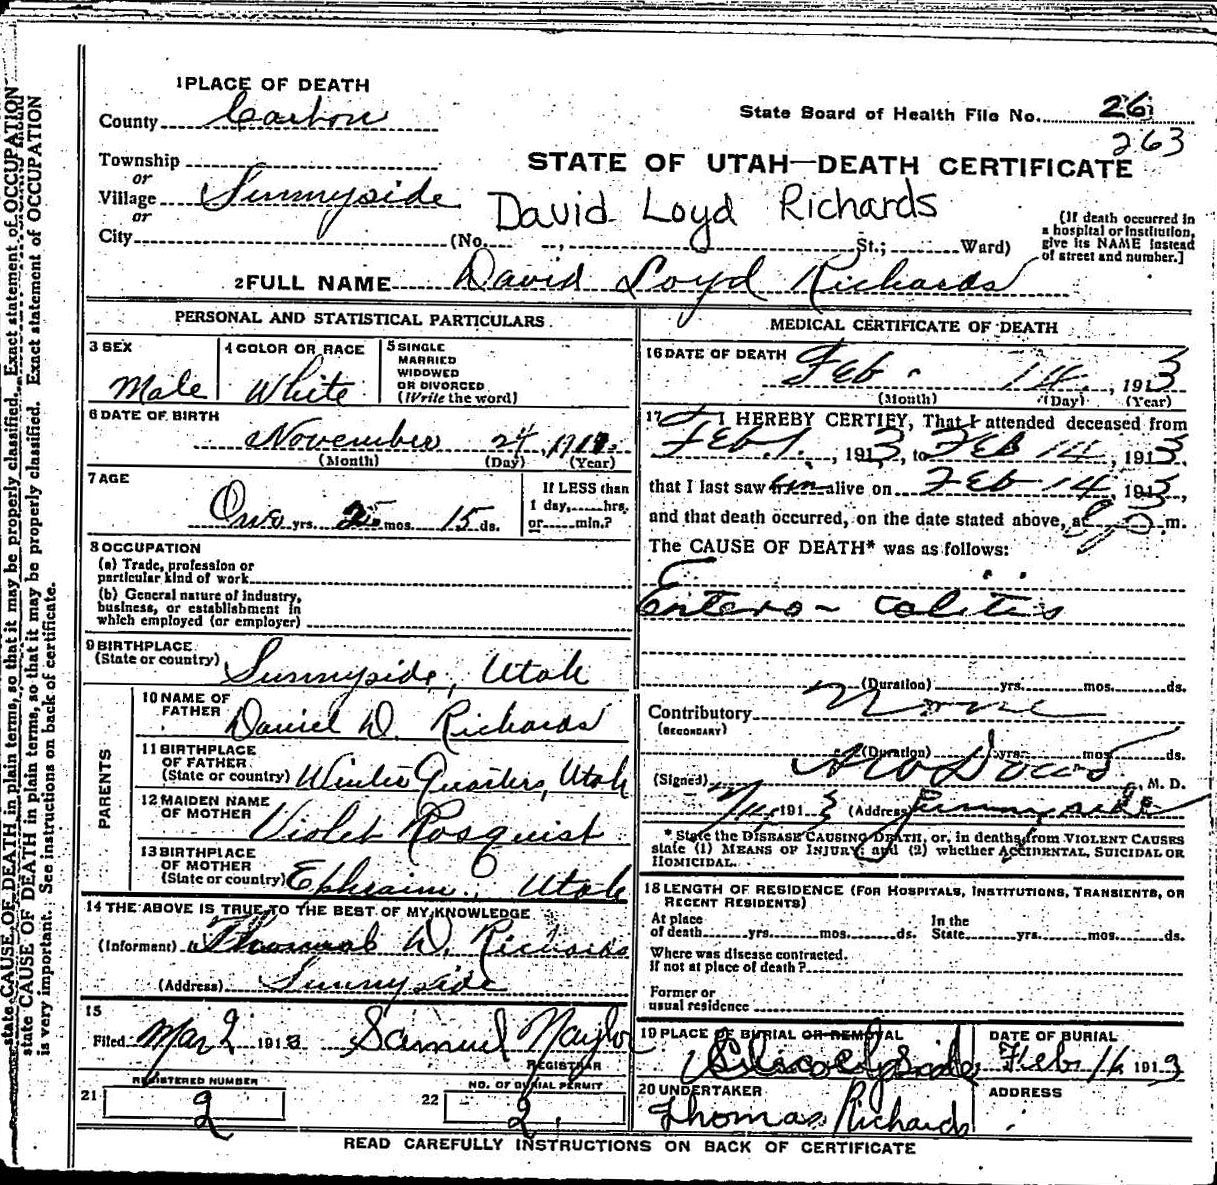 1 PLACE OF DEATH
County Carbon
State Board of Health File No. 26
263
Township
or
Village Sunnyside
or
City
STATE OF UTAH—DEATH CERTIFICATE
David Loyd Richards
(No. , St.; Ward)
(If death occurred in
a hospital or institution,
give its NAME instead
of street and number.]
2 FULL NAME David Loyd Richards
PERSONAL AND STATISTICAL PARTICULARS
3 SEX
Male
4 COLOR OR RACE
White
5 SINGLE
MARRIED
WIDOWED
OR DIVORCED
(Write the word)
6 DATE OF BIRTH
November 24, 1911
(Month) (Day) (Year)
7 AGE
One yrs. 2 mos. 15 ds.
If LESS than
1 day, hrs.
or min.?
8 OCCUPATION
(a) Trade, profession or
particular kind of work
(b) General nature of industry,
business, or establishment in
which employed (or employer)
9 BIRTHPLACE
(State or country) Sunnyside, Utah
PARENTS
10 NAME OF
FATHER Daniel D. Richards
11 BIRTHPLACE
OF FATHER
(State or country) Winter Quarters, Utah
12 MAIDEN NAME
OF MOTHER Violet Rosquist
13 BIRTHPLACE
OF MOTHER
(State or country) Ephraim, Utah
14 THE ABOVE IS TRUE TO THE BEST OF MY KNOWLEDGE
(Informant) Thomas D. Richards
(Address) Sunnyside
15
Filed Mar 2 1913 Samuel Naylor
REGISTRAR
21 REGISTERED NUMBER
2
22 NO. OF BURIAL PERMIT
2.
MEDICAL CERTIFICATE OF DEATH
16 DATE OF DEATH
Feb. 14, 1913
(Month) (Day) (Year)
17 I HEREBY CERTIFY, That I attended deceased from
Feb. 1. 1913, to Feb 14, 1913,
that I last saw him alive on Feb 14, 1913,
and that death occurred, on the date stated above, at m.
The CAUSE OF DEATH* was as follows:
Entero-colitis
(Duration) yrs. mos. ds.
Contributory None
(SECONDARY)
(Duration) yrs. mos. ds.
(Signed) M. D.
1913 (Address) Sunnyside
* State the DISEASE CAUSING DEATH, or, in deaths from VIOLENT CAUSES
state (1) MEANS OF INJURY; and (2) whether ACCIDENTAL, SUICIDAL OR
HOMICIDAL.
18 LENGTH OF RESIDENCE (FOR HOSPITALS, INSTITUTIONS, TRANSIENTS, OR
RECENT RESIDENTS)
At place
of death yrs. mos. ds.
In the
State yrs. mos. ds.
Where was disease contracted.
If not at place of death?
Former or
usual residence
19 PLACE OF BURIAL OR REMOVAL
DATE OF BURIAL
Feb 16 1913
20 UNDERTAKER
Thomas Richards
ADDRESS
READ CAREFULLY INSTRUCTIONS ON BACK OF CERTIFICATE
state CAUSE OF DEATH in plain terms, so that it may be properly classified. Exact statement of OCCUPATION
state CAUSE OF DEATH in plain terms, so that it may be properly classified. Exact statement of OCCUPATION
is very important. See instructions on back of certificate.